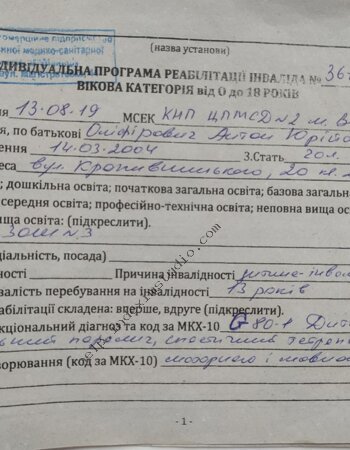 комерційне підприє
медико-санітарної
(назва установи)
НДИВІДУАЛЬНА ПРОГРАМА РЕАБІЛІТАЦІЇ ІНВАЛІДА № 36
ВІКОВА КАТЕГОРІЯ від 0 до 18 РОКІВ
ня 13-08-19 МСЕК КНП ЦПМСД №2 м. В
я, по батькові Оліфірович Антон Юрійо
ення 14-03-2004 3.Стать чол.
еса вул. Кропивницького, 20 кв.
; дошкільна освіта; початкова загальна освіта; базова загальн
середня освіта; професійно-технічна освіта; неповна вища ос
ища освіта: (підкреслити).
ЗОШ №3
іальність, посада)
ності Причина інвалідності дитина-інвал
валість перебування на інвалідності 13 років
абілітації складена: вперше, вдруге (підкреслити).
кціональний діагноз та код за МКХ-10) G 80-1 Дит
ьний параліч, спастичний тетрап
ворювання (код за МКХ-10) моторного і мовно
- 1 -